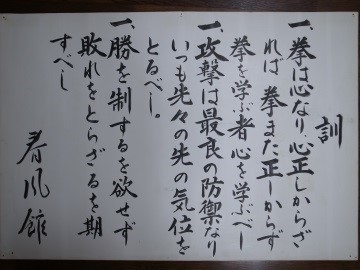 訓
一、拳は心なり心正しからざ
れば 拳また正しからず
拳を学ぶ者心を学ぶべし
一、攻撃は最良の防禦なり
いつも先々の先の気位を
とるべし。
一、勝を制するを欲せず
敗れをとらざるを期
すべし
春風館